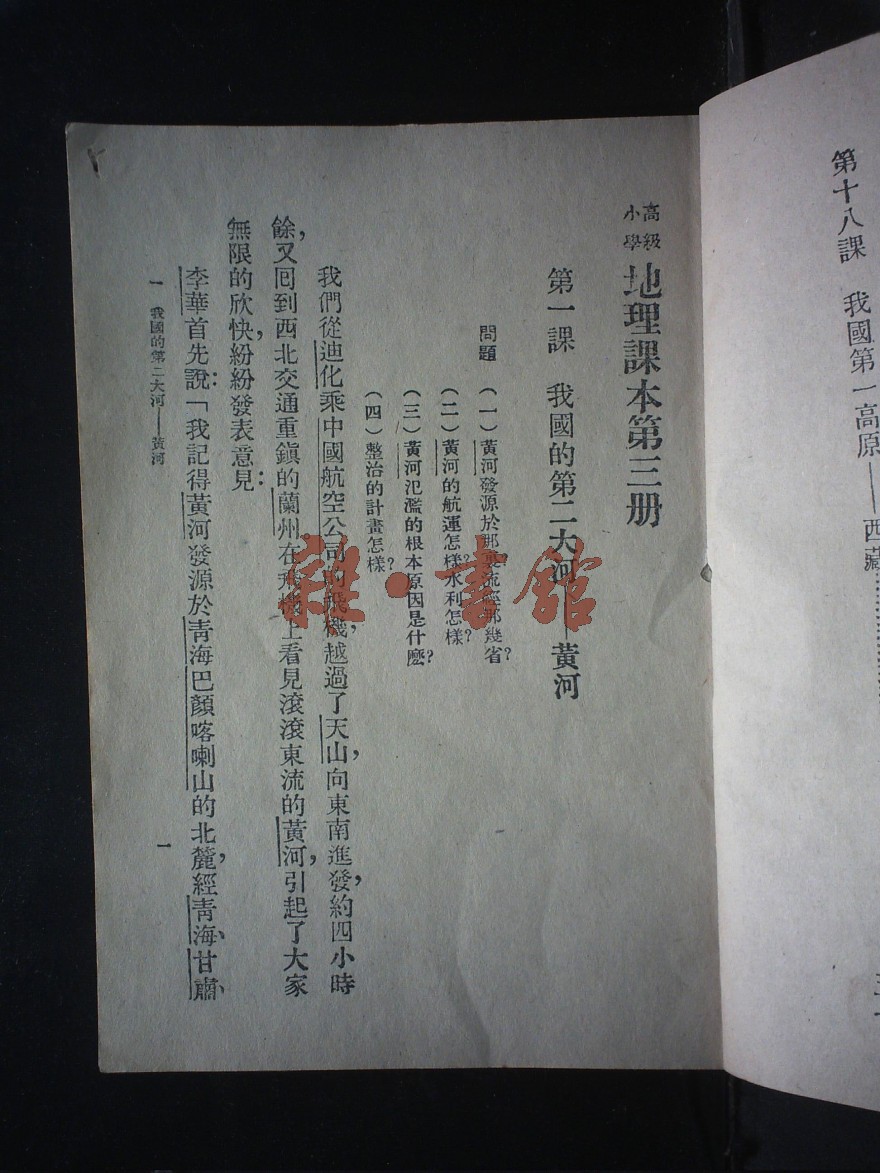 第十八課 我國第一高原——西藏
高級小學 地理課本第三册
第一課 我國的第二大河——黃河
問題 (一)黃河發源於那裏?流經那幾省?
(二)黃河的航運怎樣?水利怎樣?
(三)黃河氾濫的根本原因是什麽?
(四)整治的計畫怎樣?
我們從迪化乘中國航空公司的飛機,越過了天山,向東南進發,約四小時
餘,又囘到西北交通重鎮的蘭州在飛機上看見滾滾東流的黃河,引起了大家
無限的欣快,紛紛發表意見:
李華首先說:「我記得黃河發源於青海巴顏喀喇山的北麓,經青海、甘肅、
一 我國的第二大河——黃河
一
雜·書館